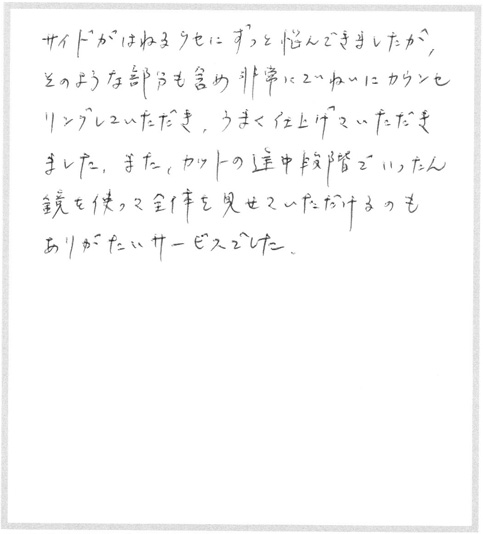 サイドがはねるクセにずっと悩んできましたが、
そのような部分も含め非常にていねいにカウンセ
リングしていただき、うまく仕上げていただき
ました。また、カットの途中段階でいったん
鏡を使って全体を見せていただけるのも
ありがたいサービスでした。